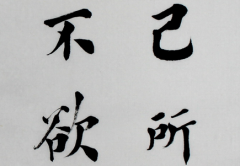 己所
不欲